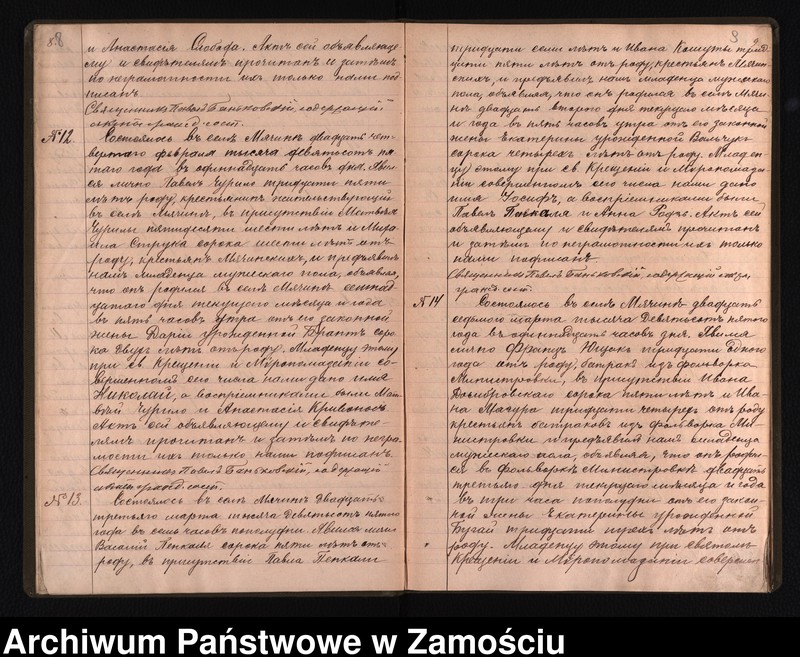 88
и Анастасія Слобода. Актъ сей объявляюще-
му и свидѣтелямъ прочитанъ и затѣмъ
по неграмотности ихъ только нами под
писанъ.
Священникъ Павелъ Баньковскій, содержащій
акты гражд. сост.
№12.
Состоялось въ селѣ Мячинѣ двадцать чет-
вертаго февраля тысяча девятьсотъ пя-
таго года въ одиннадцать часовъ дня. Яви-
ся лично Павелъ Чурило тридцати пяти
лѣтъ роду, крестьянинъ жительствующій
въ селѣ Мячинѣ, въ присутствіи Матвѣя
Чурилы пятидесяти шести лѣтъ и Миха-
ила Струка сорока шести лѣтъ отъ
роду, крестьянъ Мячинскихъ, и предъявилъ
намъ младенца мужескаго пола, объявляя,
что онъ родился въ селѣ Мячинѣ
дцатаго дня текущаго мѣсяца и года
въ пять часовъ утра отъ его законной
жены Даріи урожденной соро-
ка двухъ лѣтъ отъ роду. Младенцу этому
при св. Крещеніи и Мѵропомазаніи со-
вершенномъ его числа нами дано имя
Николай, а воспріемниками были Мат-
вѣй Чурило и Анастасія
Актъ сей объявляющему и свидѣте-
лямъ прочитанъ и затѣмъ по негра-
мотности ихъ только нами подписанъ.
Священникъ Павелъ Баньковскій, содержащій
акты гражд. сост.
№13.
Состоялось въ селѣ Мячинѣ двадцать
третьяго марта тысяча девятьсотъ пятаго
года въ семь часовъ пополудни. Явился лично
Василій Пепкаля сорока пяти лѣтъ отъ
роду, въ присутствіи Павла Пепкали
9
тридцати семи лѣтъ и Ивана трид-
цати пяти лѣтъ отъ роду, крестьянъ Мячин-
скихъ, и предъявилъ намъ младенца мужескаго
пола, объявляя, что онъ родился въ селѣ Мячи-
нѣ двадцать втораго дня текущаго мѣсяца
и года въ пять часовъ утра отъ его законной
жены Екатерины урожденной Вальчукъ
сорока четырехъ лѣтъ отъ роду. Младен-
цу этому при св. Крещеніи и Мѵропомаза-
ніи совершенномъ его числа нами дано
имя Іосифъ, а воспріемниками были
Павелъ Пепкаля и Анна Актъ сей
объявляющему и свидѣтелямъ прочитанъ
и затѣмъ по неграмотности ихъ только
нами подписанъ.
Священникъ Павелъ Баньковскій, содержащій акты
гражд. сост.
№14
Состоялось въ селѣ Мячинѣ двадцать
седьмого марта тысяча девятьсотъ пятого
года въ одиннадцать часовъ дня. Явился
лично Францъ Ющакъ тридцати одного
года отъ роду, батракъ изъ фольварка
Министровки, въ присутствіи Ивана
Домбровскаго сорока пяти лѣтъ и Ива-
на Мазура тридцати четырехъ отъ роду
крестьянъ батраковъ изъ фольварка Ми-
нистровки и предъявилъ намъ младенца
мужескаго пола, объявляя, что онъ родил-
ся въ фольваркѣ Министровкѣ двадцать
третьяго дня текущаго мѣсяца и года
въ три часа пополудни отъ его закон-
ной жены Екатерины урожденной
Бугай тридцати трехъ лѣтъ отъ
роду. Младенцу этому при святомъ
Крещеніи и Мѵропомазаніи совершен
Archiwum Państwowe w Zamościu